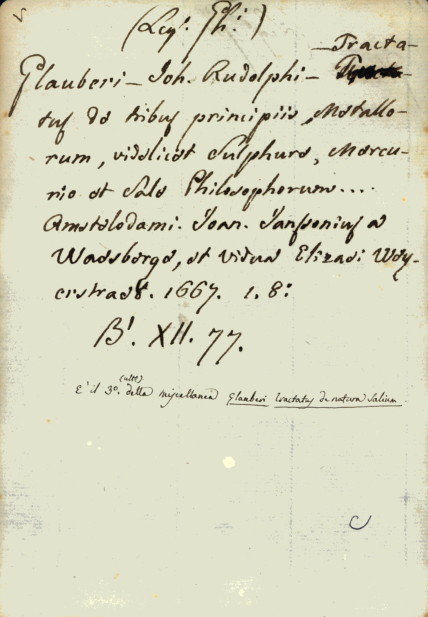 (Leg. Ph.)
Glauberi – Joh. Rudolphi – Tracta-
tus de tribus principiis, Metallo-
rum, videlicet Sulphure, Mercu-
rio et Sale Philosophorum....
Amstelodami. Joan. Janssonius a
Waesberge, et vidua Elizaei Wey-
erstraet. 1667. 1. 8:
B. XII. 77.
E' il 3º (alle) della miscellanea Glauberi tractatus de natura Salium.